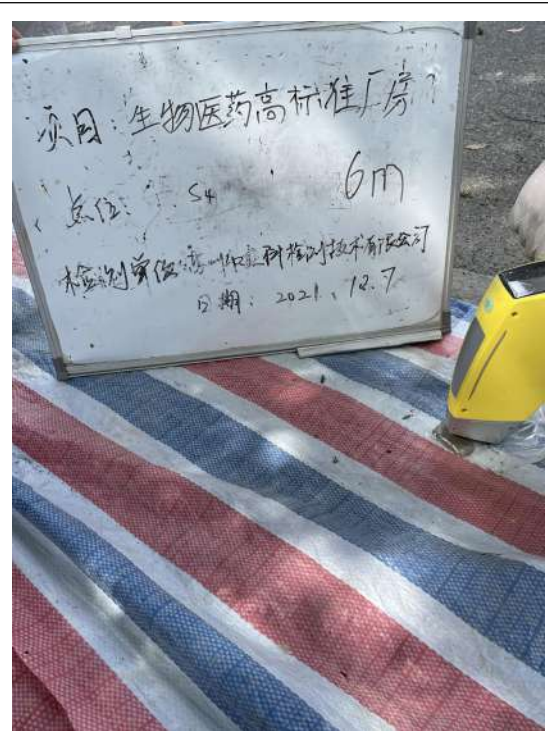 项目：生物医药高标准厂房
点位： S4 6m
检测单位： 检测技术有限公司
日期： 2021.12.7